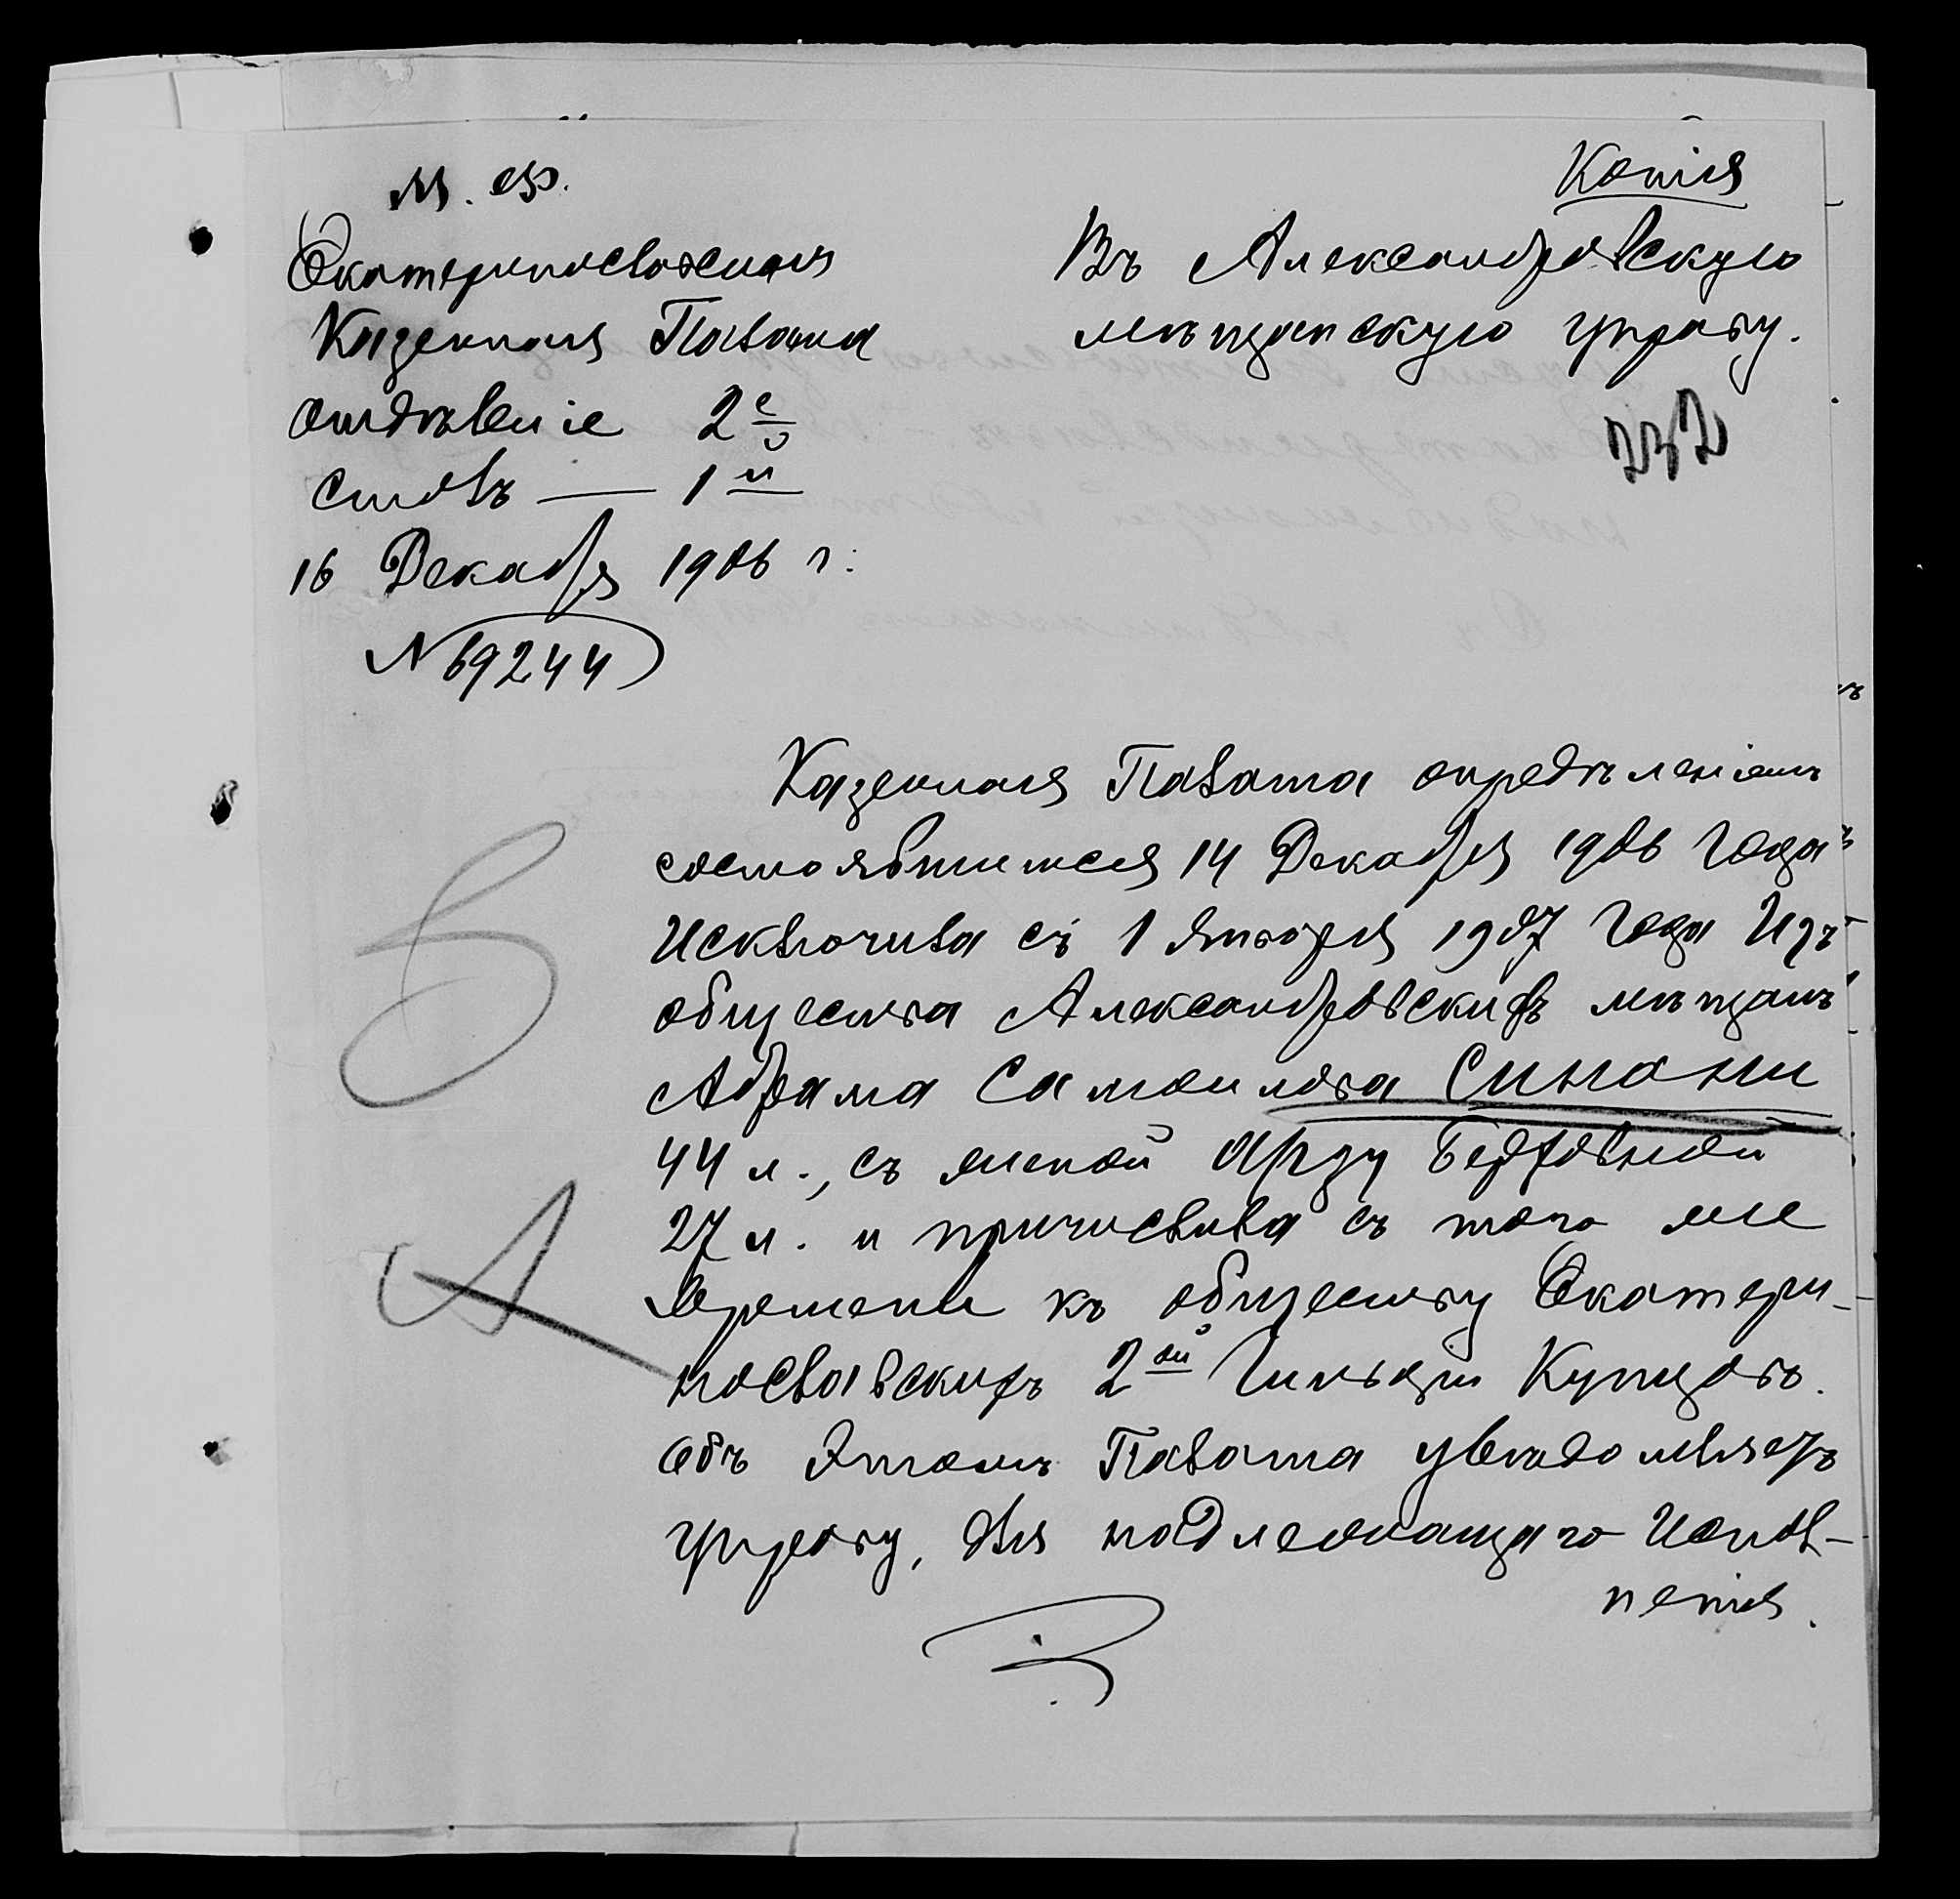 М. Ф.
Копія
Екатеринославская
Казенная Палата
Отдѣленіе 2е
Столъ — 1й
16 Декабря 1906 г.
№ 69244
Въ Александровскую
мѣщанскую управу.
232
Казенная Палата опредѣленіемъ
состоявшимся 14 Декабря 1906 года
Исключила съ 1 Января 1907 года Изъ
общества Александровскихъ мѣщанъ
Абрама Самойлова Синани
44 л., съ женой Арзу Бераховной
27 л. и причислила съ того же
времени къ обществу Екатери-
нославскихъ 2ой Гильдіи Купцовъ.
Объ этомъ Палата увѣдомляетъ
управу, для надлежащаго Испол-
ненія.